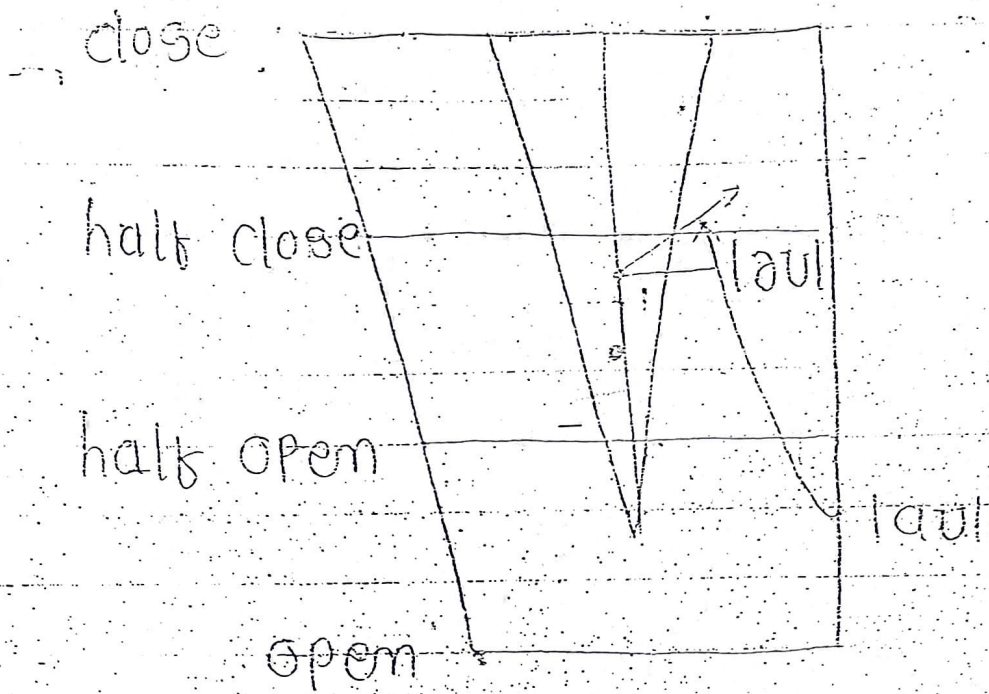 close
half close
|əʊ|
half open
|aʊ|
open